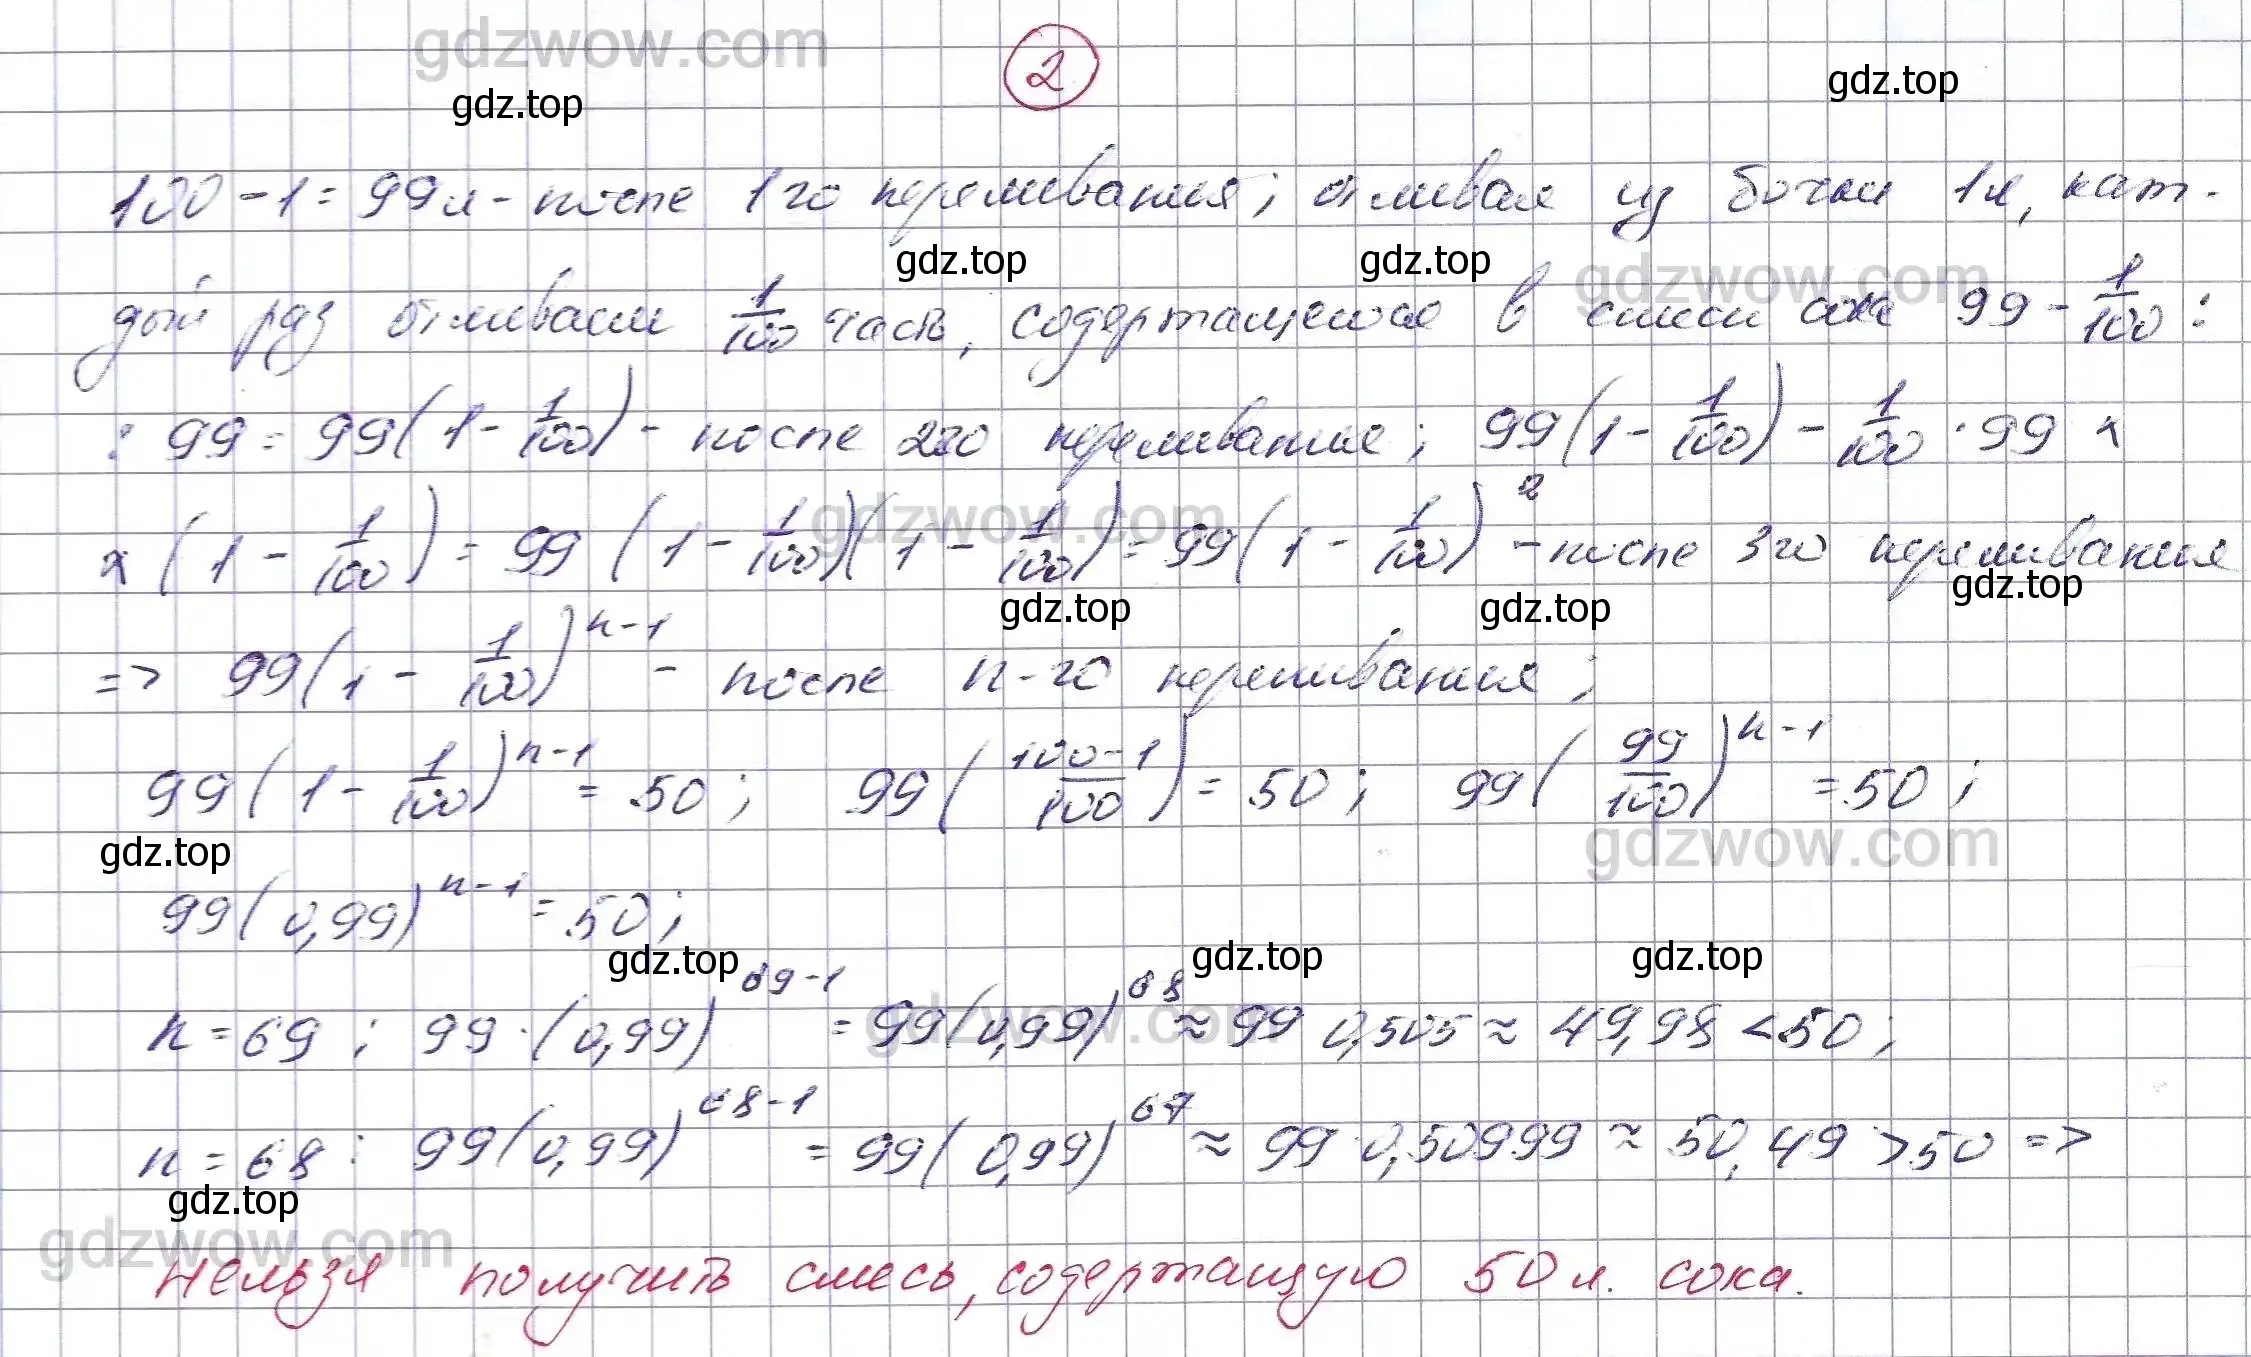 gdzwow.com
2
gdz.top gdz.top
100 - 1 = 99 л - после 1го переливания; отливая из бочки 1л, каж-
gdz.top gdz.top gdzwow.com
дый раз отливаем 1/100 часть, содержащегося в смеси сока 99 - 1/100 :
: 99 = 99(1 - 1/100) - после 2го переливания; 99(1 - 1/100) - 1/100 · 99 ×
gdzwow.com
× (1 - 1/100) = 99 (1 - 1/100)(1 - 1/100) = 99(1 - 1/100)² - после 3го переливания
gdz.top gdz.top gdz.top
=> 99(1 - 1/100)^(n-1) - после n-го переливания;
99(1 - 1/100)^(n-1) = 50; 99((100-1)/100) = 50; 99(99/100)^(n-1) = 50;
gdz.top gdzwow.com
99(0,99)^(n-1) = 50;
gdz.top gdz.top gdz.top
gdzwow.com
n = 69 ; 99·(0,99)^(69-1) = 99(0,99)^68 ≈ 99 0,505 ≈ 49,98 < 50;
n = 68 : 99(0,99)^(68-1) = 99(0,99)^67 ≈ 99·0,50999 ≈ 50,49 > 50 =>
gdz.top
gdzwow.com
Нельзя получить смесь, содержащую 50 л. сока.